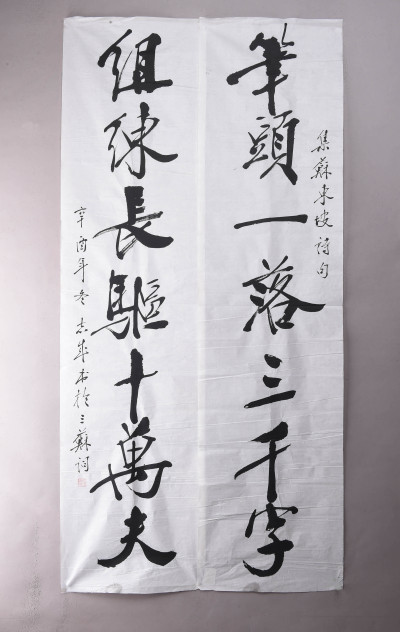 集蘇東坡詩句
筆頭一落三千字
組練長驅十萬夫
辛酉年冬志成书於三蘇祠